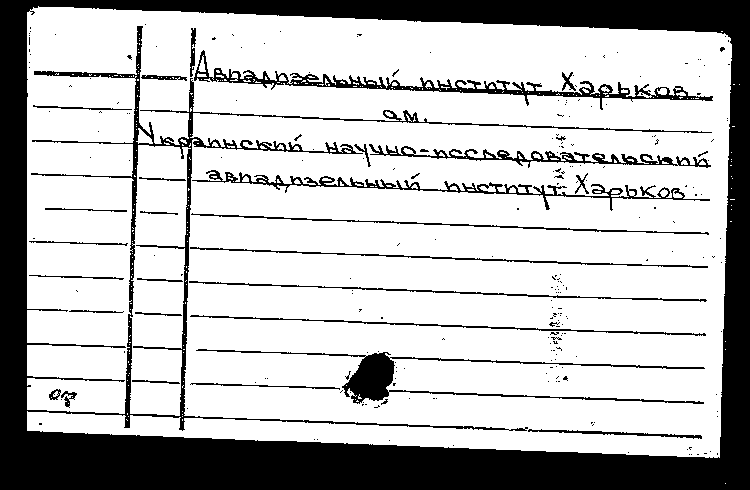 Авиадизельный институт. Харьков.
см.
Украинский научно-исследовательский
авиадизельный институт. Харьков.